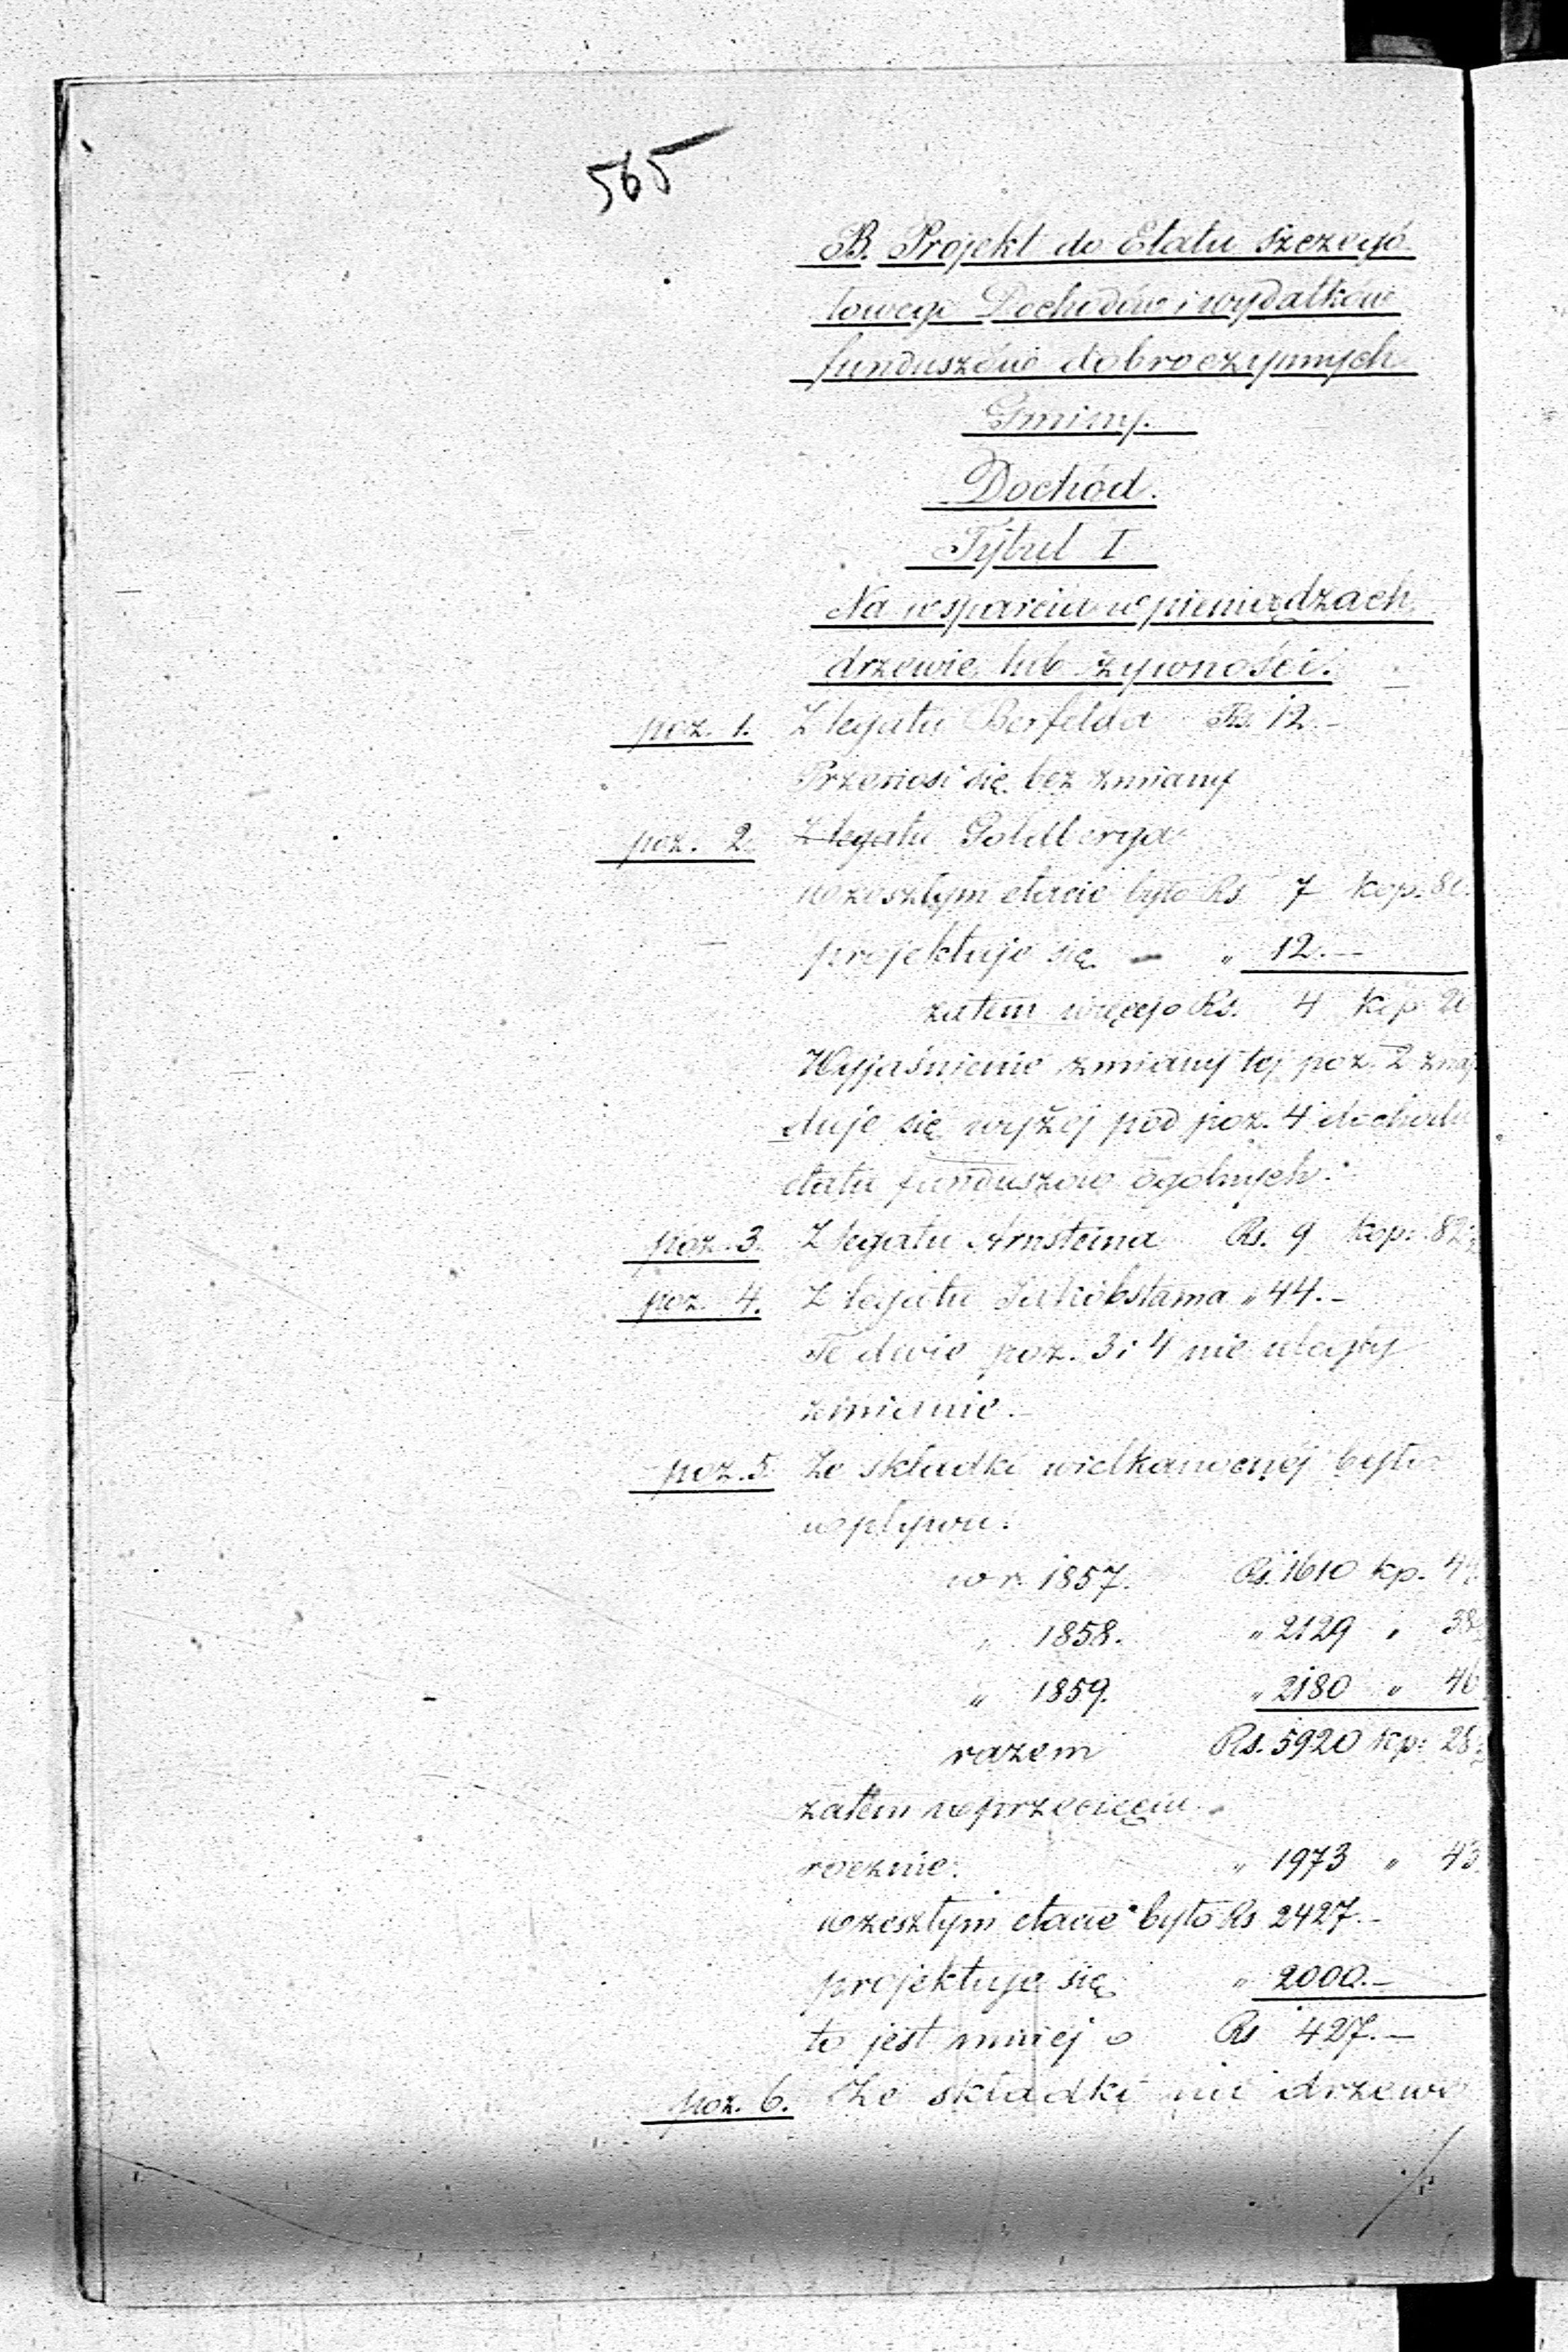 565
B. Projekt do Etatu szczegó-
łowego Dochodów i wydatków
funduszów dobroczynnych
Gminy.
Dochód.
Tytuł I
Na wsparcia w pieniądzach,
drzewie, lub żywności.
poz. 1. Z legatu Berfelda Rs. 12.-
Przenosi się bez zmiany
poz. 2. Z legatu Goldberga
w zeszłym etacie było Rs. 7 kop. 80.
projektuje się - " 12.-
zatem więcej o Rs. 4 kop 20
Wyjaśnienie zmiany tej poz. 2 znaj-
duje się wyżej pod poz. 4 dochodu
etatu funduszów ogólnych.
poz. 3. Z legatu Arnsteina Rs. 9 kop. 82
poz. 4. Z legatu Jakóbstama " 44.-
Te dwie poz. 3 i 4 nie uległy
zmianie.-
poz. 5. Ze składki wielkanocnéj było
wpływu:
w r. 1857. Rs. 1610 kp. 44
" 1858. " 2129 " 38
" 1859. " 2180 " 46
razem Rs. 5920 kp. 28
zatem w przecięciu
rocznie. " 1973 " 43
w zeszłym etacie było Rs 2427.-
projektuje się " 2000.-
to jest mniej o Rs 427.-
poz. 6. Ze składki na drzewo
./.